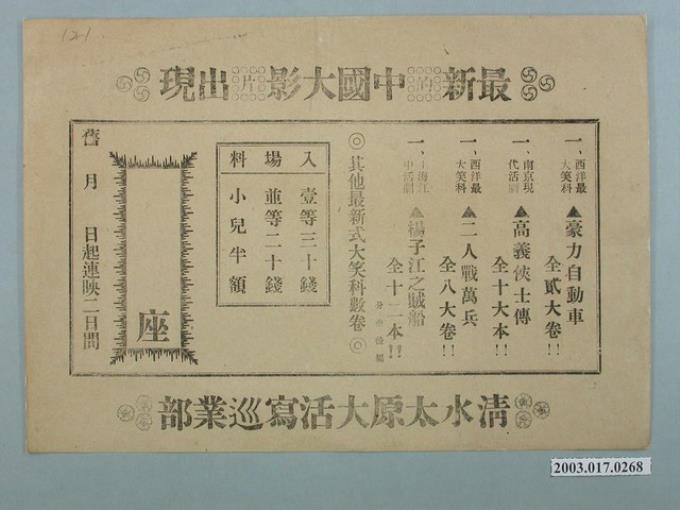 121
最新的中國大影片出現
一、西洋最大笑科 ▲豪力自動車 全貳大卷!!
一、南京現代活劇 ▲高義俠士傳 全十大本!!
一、西洋最大笑科 ▲二人戰萬兵 全八大卷!!
一、上海江中活劇 ▲楊子江之賊船 全十二本!!
◎其他最新式大笑科數卷◎
入場料
壹等三十錢
並等二十錢
小兒半額
座
舊 月 日起連映二日間
清水太原大活寫巡業部
2003.017.0268